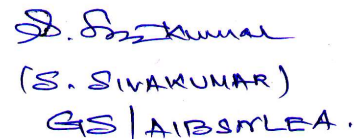 S. Sivakumar
(S. SIVAKUMAR)
GS | AIBSNLEA.